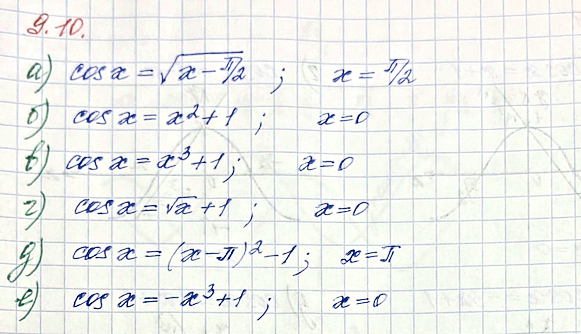 9.10.
а) cos x = √(x − π/2) ; x = π/2
б) cos x = x² + 1 ; x = 0
в) cos x = x³ + 1 ; x = 0
г) cos x = √x + 1 ; x = 0
д) cos x = (x − π)² − 1 ; x = π
е) cos x = −x³ + 1 ; x = 0